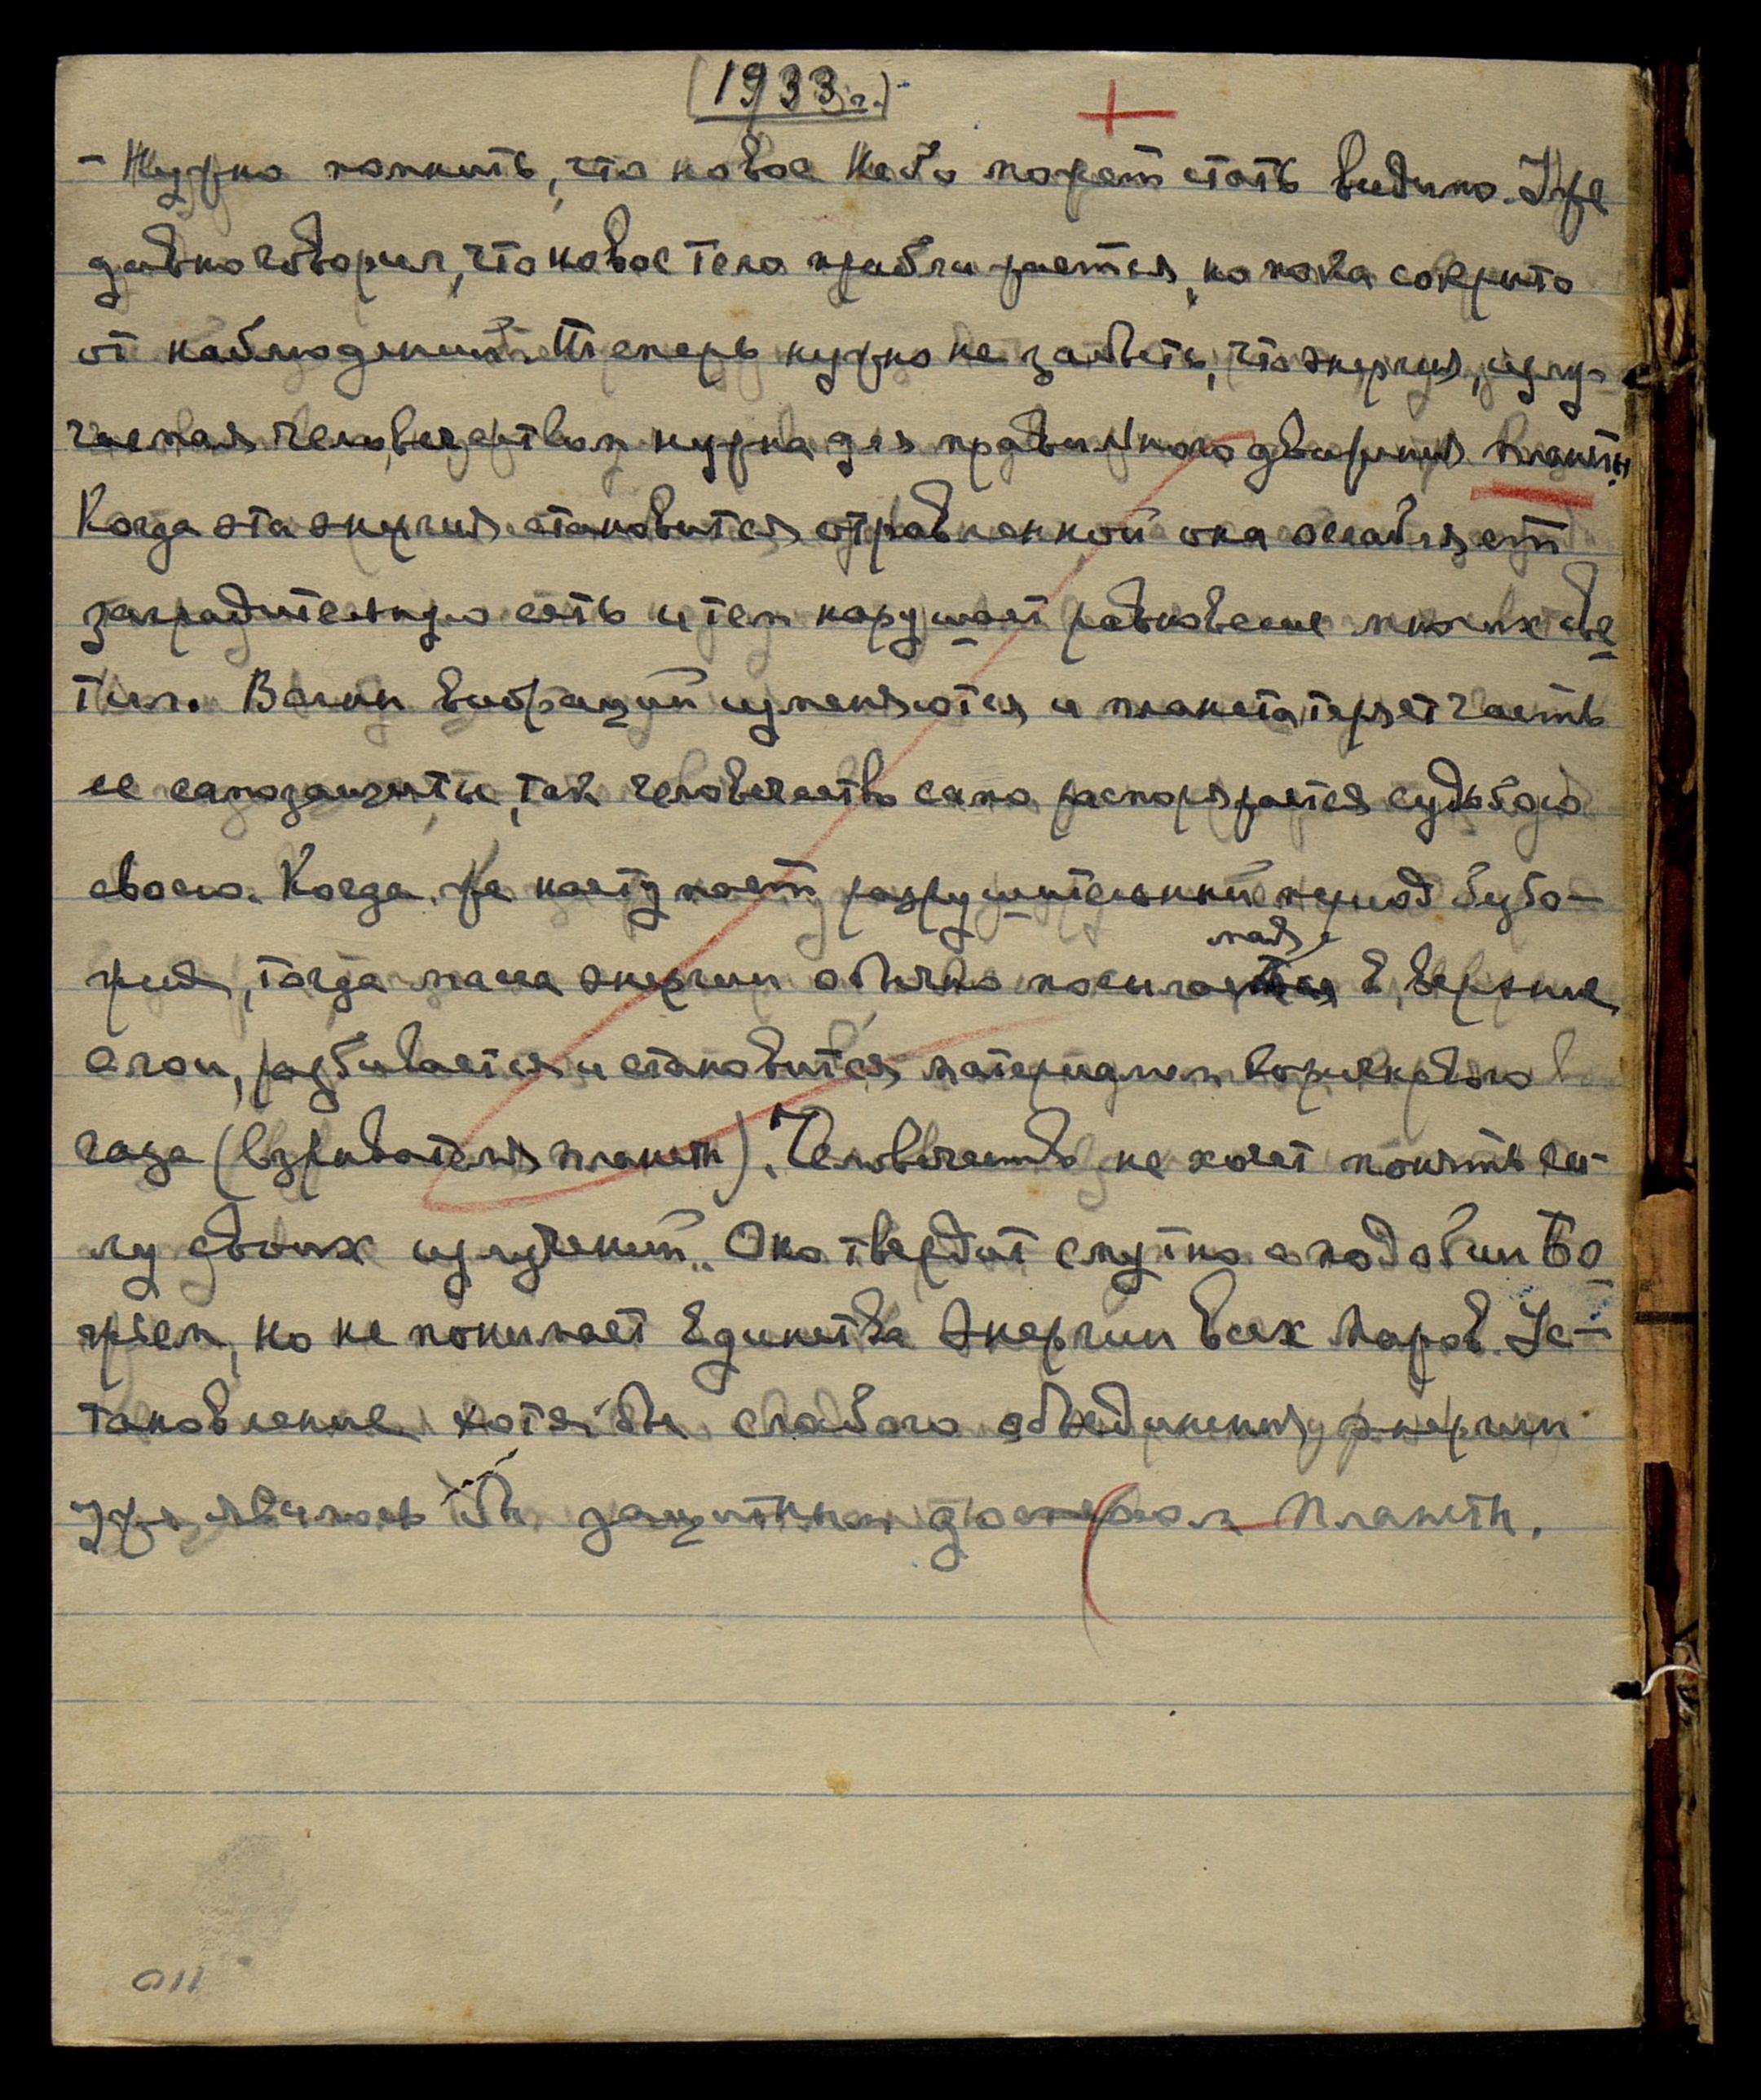 (1933 г.)
+
- Нужно помнить, что новое Небо может стать видимо. Уже
давно говорил, что новое тело приближается, но пока сокрыто
от наблюдений. Теперь нужно не забыть, что энергия, излу-
чаемая человечеством нужна для правильного движения планеты.
Когда эта энергия становится отравленной она ослабляет
заградительную сеть и тем нарушает равновесие многих све
тил. Волны вибраций изменяются и планета теряет часть
ее самозащиты, так человечество само распоряжается судьбою
своею. Когда же наступает разрушительный период безбо-
жия, тогда масса энергии обычно посылаемая в верхние
слои, разбивается и становится материалом коричневого
газа (взрывателя планеты). Человечество не хочет понять си-
лу своих излучений. Оно твердит смутно о подобии Бо
жьем, но не понимает Единства Энергии всех Миров. Ус-
тановление хотя бы слабого объединения энергии
уже явилось бы защитным дозором Планеты.
110